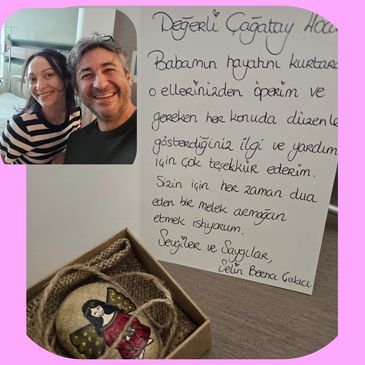 Değerli Çağatay
Babamın hayatını
o ellerinizden öperim ve
gereken her konuda
gösterdiğiniz ilgi ve
için çok teşekkür ederim.
Sizin için her zaman dua
eden bir melek armağan
etmek istiyorum.
Sevgiler ve Saygılar,